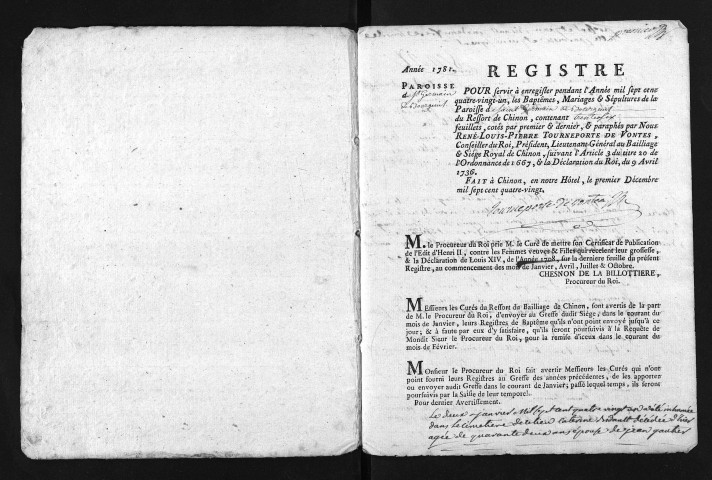 Année 1781.
REGISTRE
PAROISSE
d St Germain
de Bourgueil
POUR servir à enregistrer pendant l'Année mil sept cent
quatre-vingt-un, les Baptêmes, Mariages & Sépultures de la
Paroisse d Saint Germain de Bourgueil
du Ressort de Chinon, contenant
feuillets, cotés par premier & dernier, & paraphés par Nous
RENÉ-LOUIS-PIERRE TOURNEPORTE DE VONTES,
Conseiller du Roi, Président, Lieutenant-Général au Bailliage
& Siége Royal de Chinon, suivant l'Article 3 du titre 20 de
l'Ordonnance de 1667, & la Déclaration du Roi, du 9 Avril
1736.
FAIT à Chinon, en notre Hôtel, le premier Décembre
mil sept cent quatre-vingt.
Tourneporte de vontes
M. le Procureur du Roi prie M. le Curé de mettre son Certificat de Publication
de l'Edit d'Henri II, contre les Femmes veuves & Filles qui recelent leur grossesse,
& la Déclaration de Louis XIV, de l'Année 1708, sur la derniere feuille du présent
Registre, au commencement des mois de Janvier, Avril, Juillet & Octobre.
CHESNON DE LA BILLOTTIERE,
Procureur du Roi.
MEssieurs les Curés du Ressort du Bailliage de Chinon, sont avertis de la part
de M. le Procureur du Roi, d'envoyer au Greffe dudit Siége, dans le courant du
mois de Janvier, leurs Registres de Baptême qu'ils n'ont point envoyé jusqu'à ce
jour; & à faute par eux d'y satisfaire, qu'ils seront poursuivis à la Requête de
Mondit Sieur le Procureur du Roi, pour la remise d'iceux dans le courant du
mois de Février.
MOnsieur le Procureur du Roi fait avertir Messieurs les Curés qui n'ont
point fourni leurs Registres au Greffe des années précédentes, de les apporter
ou envoyer audit Greffe dans le courant de Janvier; passé lequel temps, ils seront
poursuivis par la Saisie de leur temporel.
Pour dernier Avertissement.
Le deux janvier Mil Sept Cent quatre vingt un a été inhumée
dans le cimetiere de ce lieu décédée d'hier
agée de quarante deux ans épouse de jean gautier